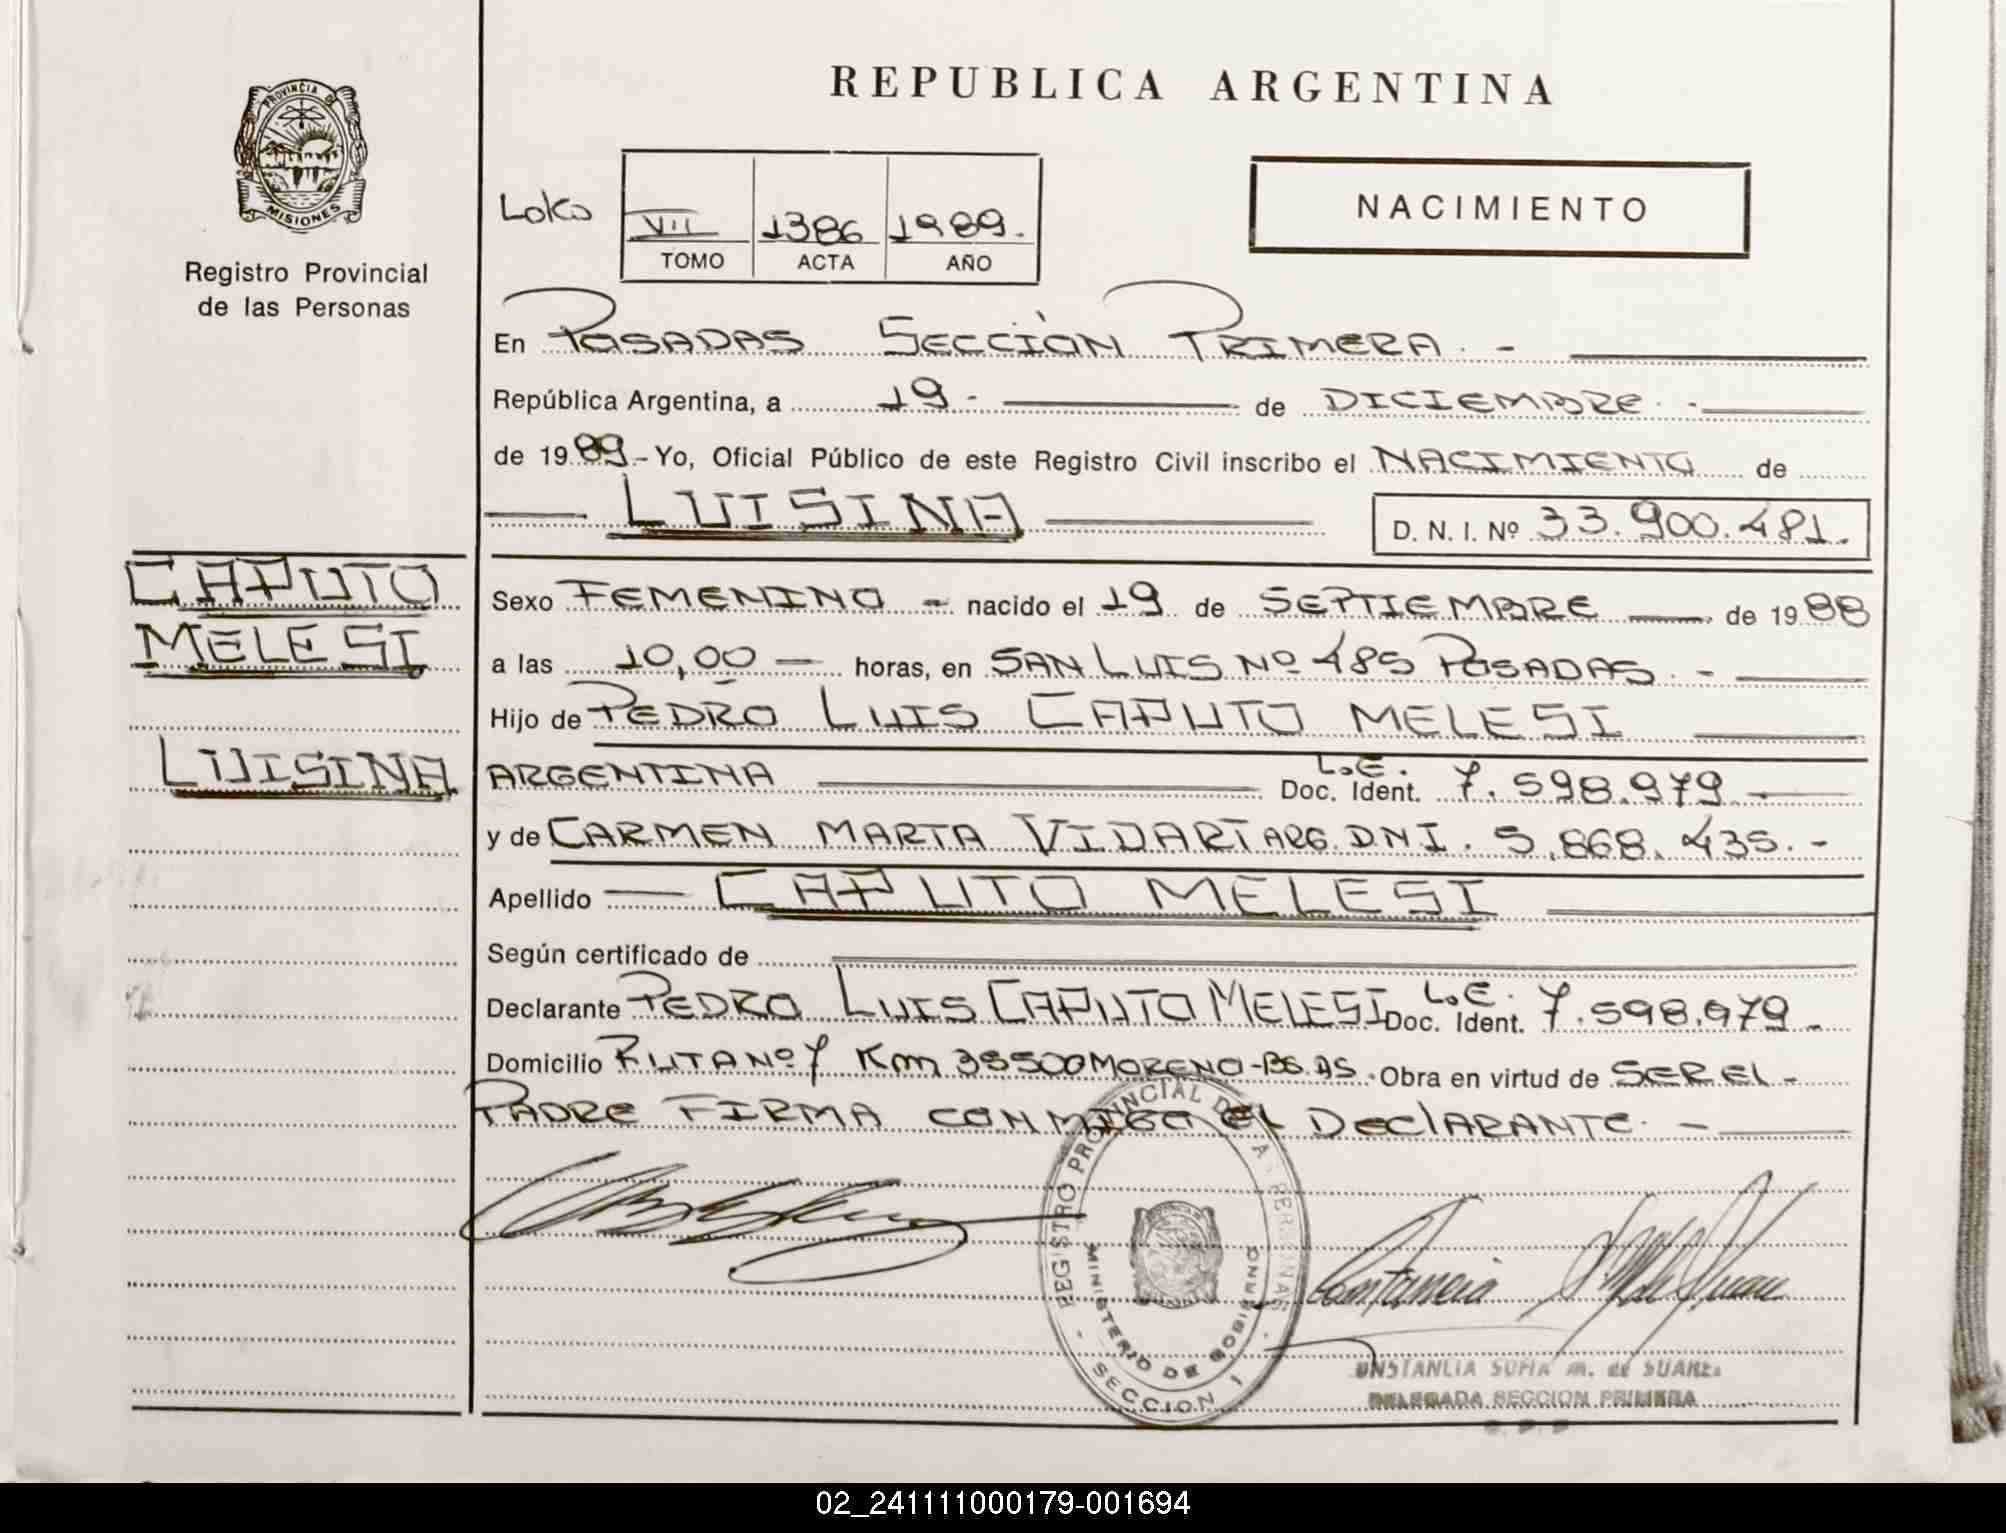 PROVINCIA DE
MISIONES
Registro Provincial
de las Personas
REPUBLICA ARGENTINA
NACIMIENTO
VII 1386 1989.
TOMO ACTA AÑO
En POSADAS SECCIÓN PRIMERA. -
República Argentina, a 19 - de DICIEMBRE. -
de 19 89 - Yo, Oficial Público de este Registro Civil inscribo el NACIMIENTO de
LUISINA
D. N. I. Nº 33.900.481.
CAPUTO
MELESI
LUISINA
Sexo FEMENINO - nacido el 19 de SEPTIEMBRE de 19 88
a las 10,00 — horas, en SAN LUIS Nº 485 POSADAS. -
Hijo de PEDRO LUIS CAPUTO MELESI
ARGENTINA L.E. Doc. Ident. 7.598.979
y de CARMEN MARTA VIDART ARG. DNI. 5.868.435. -
Apellido CAPUTO MELESI
Según certificado de
Declarante PEDRO LUIS CAPUTO MELESI L.E. Doc. Ident. 7.598.979
Domicilio RUTA Nº 7 Km 35500 MORENO-BS.AS. Obra en virtud de SER EL -
PADRE FIRMA CONMIGO EL DECLARANTE. -
REGISTRO PROVINCIAL DE LAS PERSONAS
MINISTERIO DE GOBIERNO
- SECCION 1 -
SOFIA M. de SUAREZ
DELEGADA SECCION PRIMERA
02_241111000179-001694